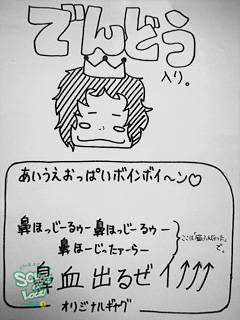 でんどう
入り。
あいうえおっぱいボインボイ〜ン♡
鼻ほっじーるぅー鼻ほっじーるぅー
鼻ほーじったァーらー
鼻血出るぜイ↑↑↑
オリジナルギャグ